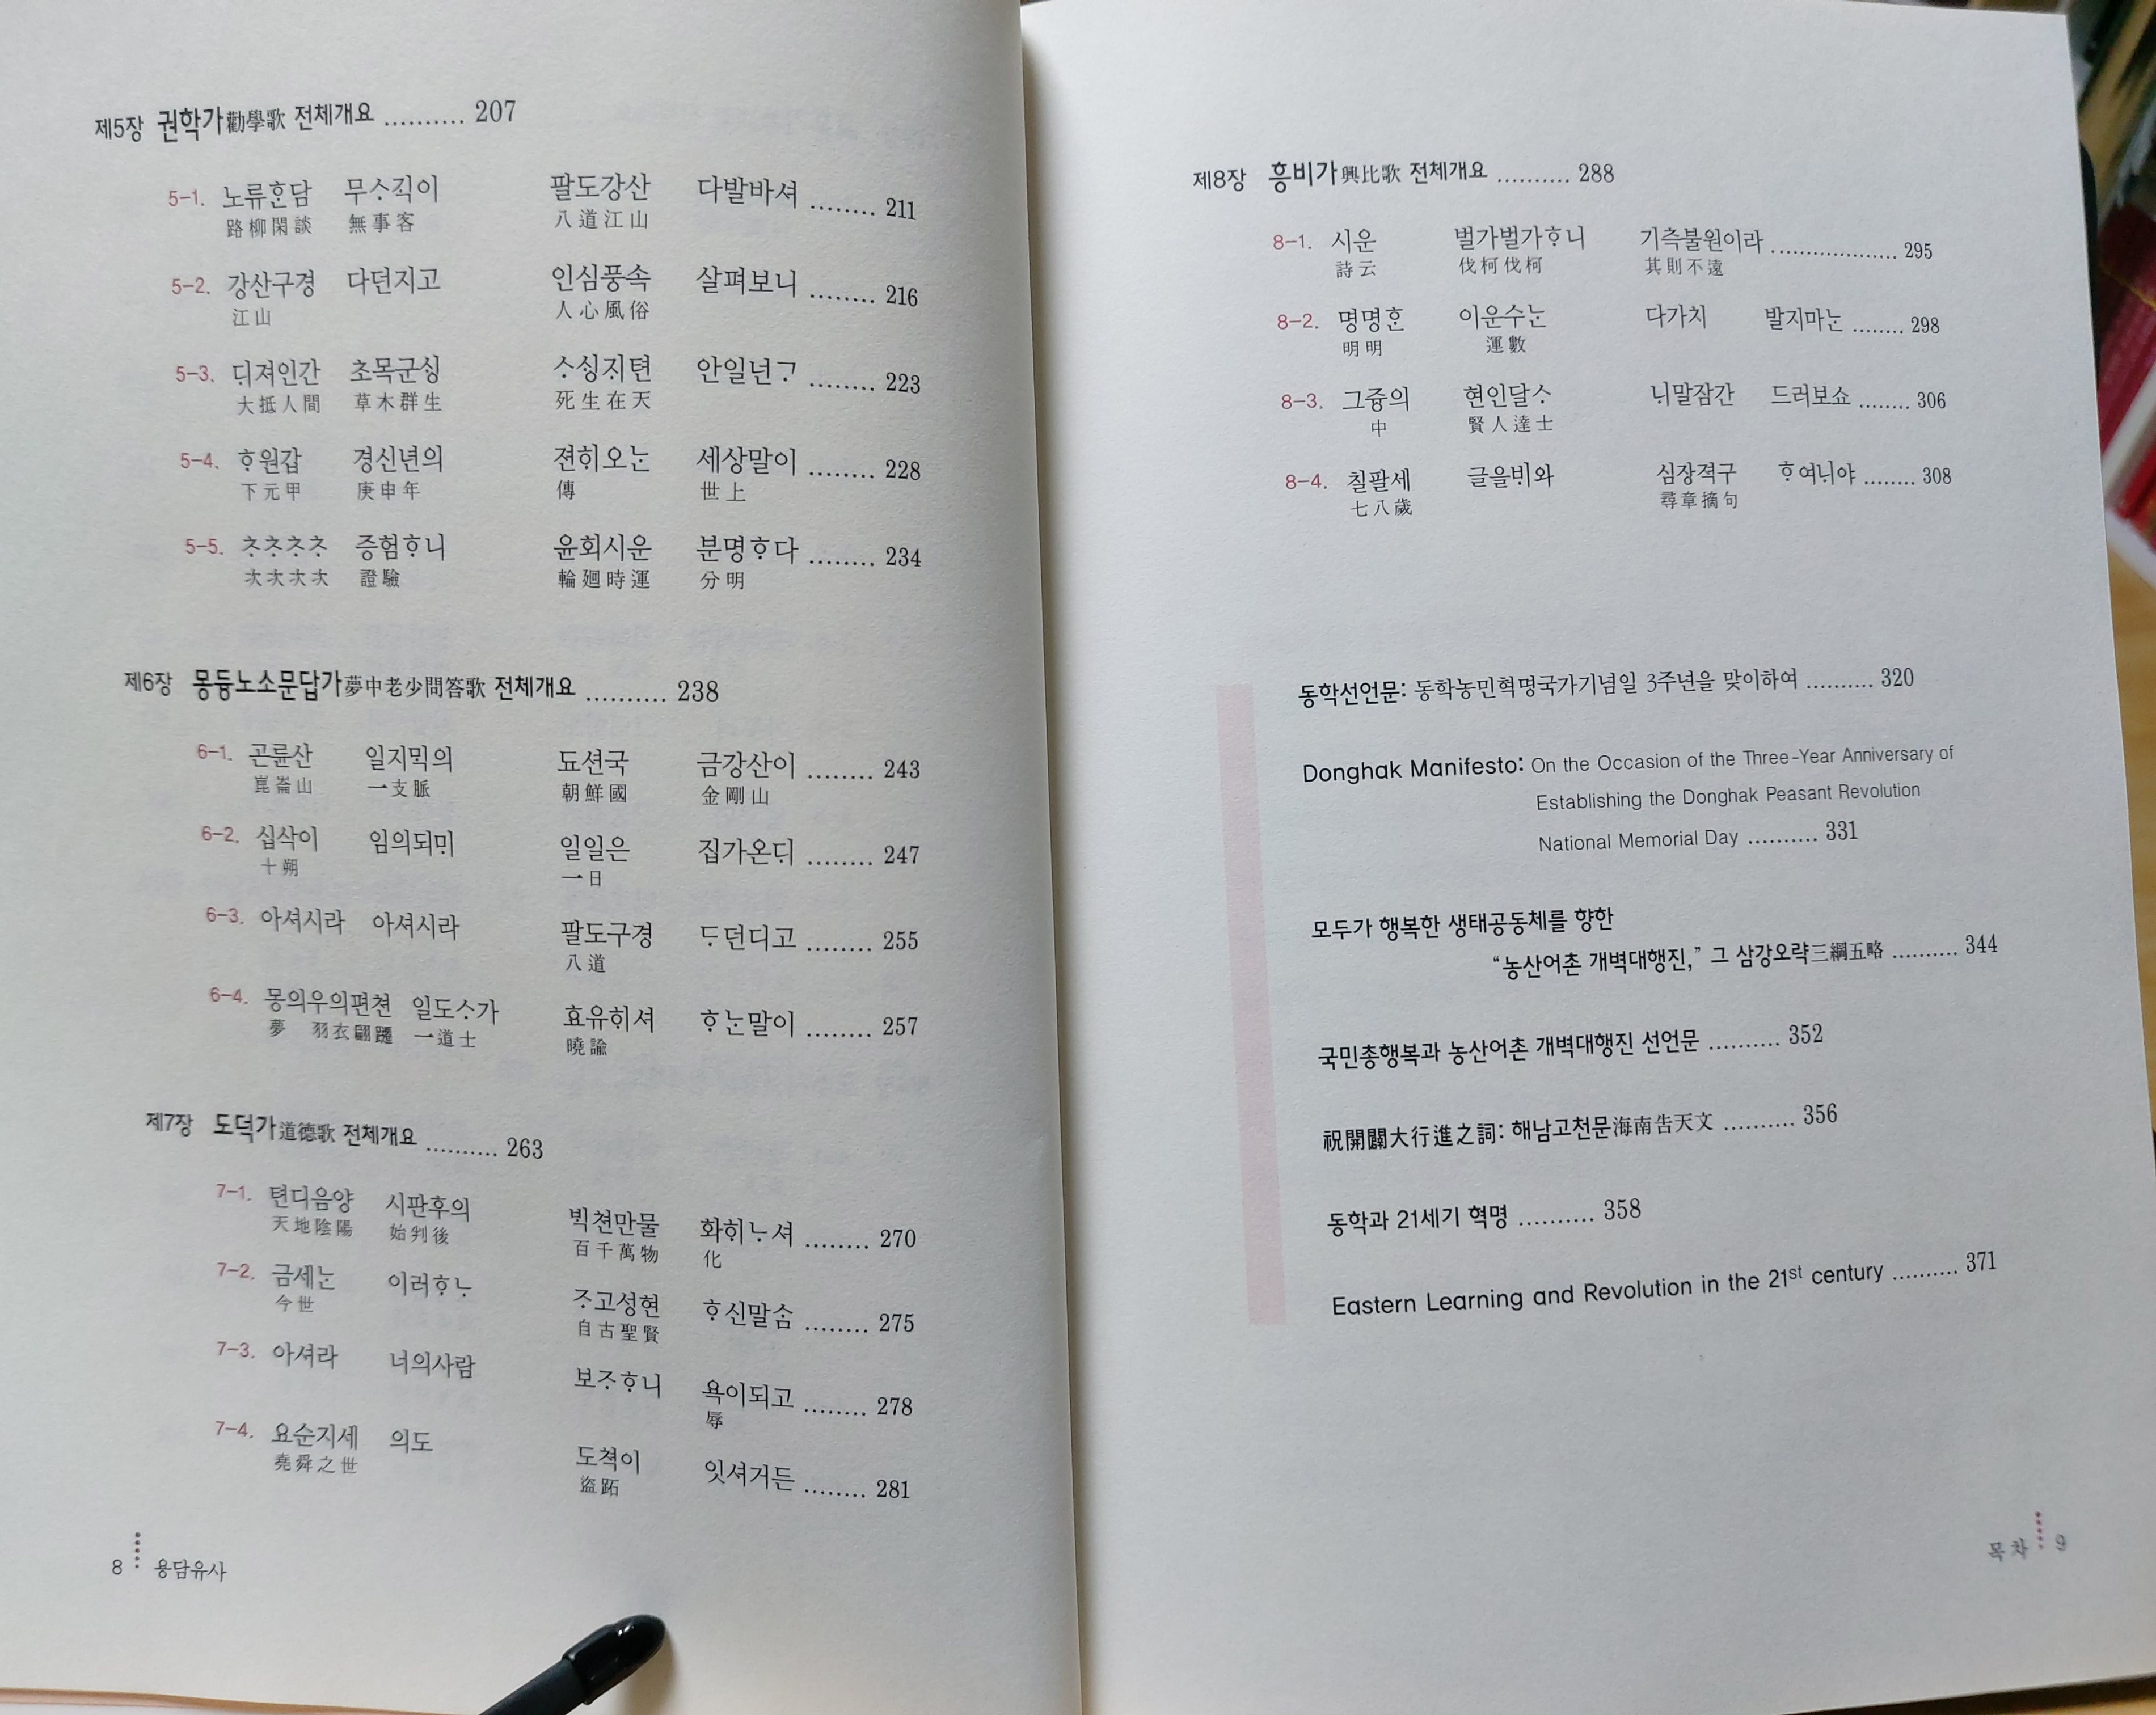 제5장 권학가勸學歌 전체개요 .......... 207
5-1. 노류ᄒᆞᆫ담 무ᄉᆞᄀᆡᆨ이 팔도강산 다발바셔 ........ 211
路柳閑談 無事客 八道江山
5-2. 강산구경 다던지고 인심풍속 살펴보니 ........ 216
江山 人心風俗
5-3. ᄃᆡ져인간 초목군ᄉᆡᆼ ᄉᆞᄉᆡᆼᄌᆡ텬 안일넌ᄀᆞ ........ 223
大抵人間 草木群生 死生在天
5-4. ᄒᆞ원갑 경신년의 젼ᄒᆡ오ᄂᆞᆫ 세상말이 ........ 228
下元甲 庚申年 傳 世上
5-5. ᄎᆞᄎᆞᄎᆞᄎᆞ 증험ᄒᆞ니 윤회시운 분명ᄒᆞ다 ........ 234
次次次次 證驗 輪廻時運 分明
제6장 몽듕노소문답가夢中老少問答歌 전체개요 .......... 238
6-1. 곤륜산 일지ᄆᆡᆨ의 됴션국 금강산이 ........ 243
崑崙山 一支脈 朝鮮國 金剛山
6-2. 십삭이 임의되ᄆᆡ 일일은 집가온ᄃᆡ ........ 247
十朔 一日
6-3. 아셔시라 아셔시라 팔도구경 ᄃᆞ던디고 ........ 255
八道
6-4. 몽의우의편쳔 일도ᄉᆞ가 효유ᄒᆡ셔 ᄒᆞᄂᆞᆫ말이 ........ 257
夢 羽衣翩躚 一道士 曉諭
제7장 도덕가道德歌 전체개요 .......... 263
7-1. 텬디음양 시판후의 ᄇᆡᆨ쳔만물 화ᄒᆡᄂᆞ셔 ........ 270
天地陰陽 始判後 百千萬物 化
7-2. 금세ᄂᆞᆫ 이러ᄒᆞᄂᆞ ᄌᆞ고성현 ᄒᆞ신말ᄉᆞᆷ ........ 275
今世 自古聖賢
7-3. 아셔라 너의사람 보ᄌᆞᄒᆞ니 욕이되고 ........ 278
辱
7-4. 요순지세 의도 도쳑이 잇셔거든 ........ 281
堯舜之世 盜跖
8 용담유사
제8장 흥비가興比歌 전체개요 .......... 288
8-1. 시운 벌가벌가ᄒᆞ니 기측불원이라 ................... 295
詩云 伐柯伐柯 其則不遠
8-2. 명명ᄒᆞᆫ 이운수ᄂᆞᆫ 다가치 발지마ᄂᆞᆫ ........ 298
明明 運數
8-3. 그즁의 현인달ᄉᆞ ᄂᆡ말잠간 드러보쇼 ........ 306
中 賢人達士
8-4. 칠팔세 글을ᄇᆡ와 심장젹구 ᄒᆞ여ᄂᆡ야 ........ 308
七八歲 尋章摘句
동학선언문: 동학농민혁명국가기념일 3주년을 맞이하여 .......... 320
Donghak Manifesto: On the Occasion of the Three-Year Anniversary of
Establishing the Donghak Peasant Revolution
National Memorial Day .......... 331
모두가 행복한 생태공동체를 향한
“농산어촌 개벽대행진,” 그 삼강오략三綱五略 .......... 344
국민총행복과 농산어촌 개벽대행진 선언문 .......... 352
祝開闢大行進之詞: 해남고천문海南告天文 .......... 356
동학과 21세기 혁명 .......... 358
Eastern Learning and Revolution in the 21st century .......... 371
목차 9